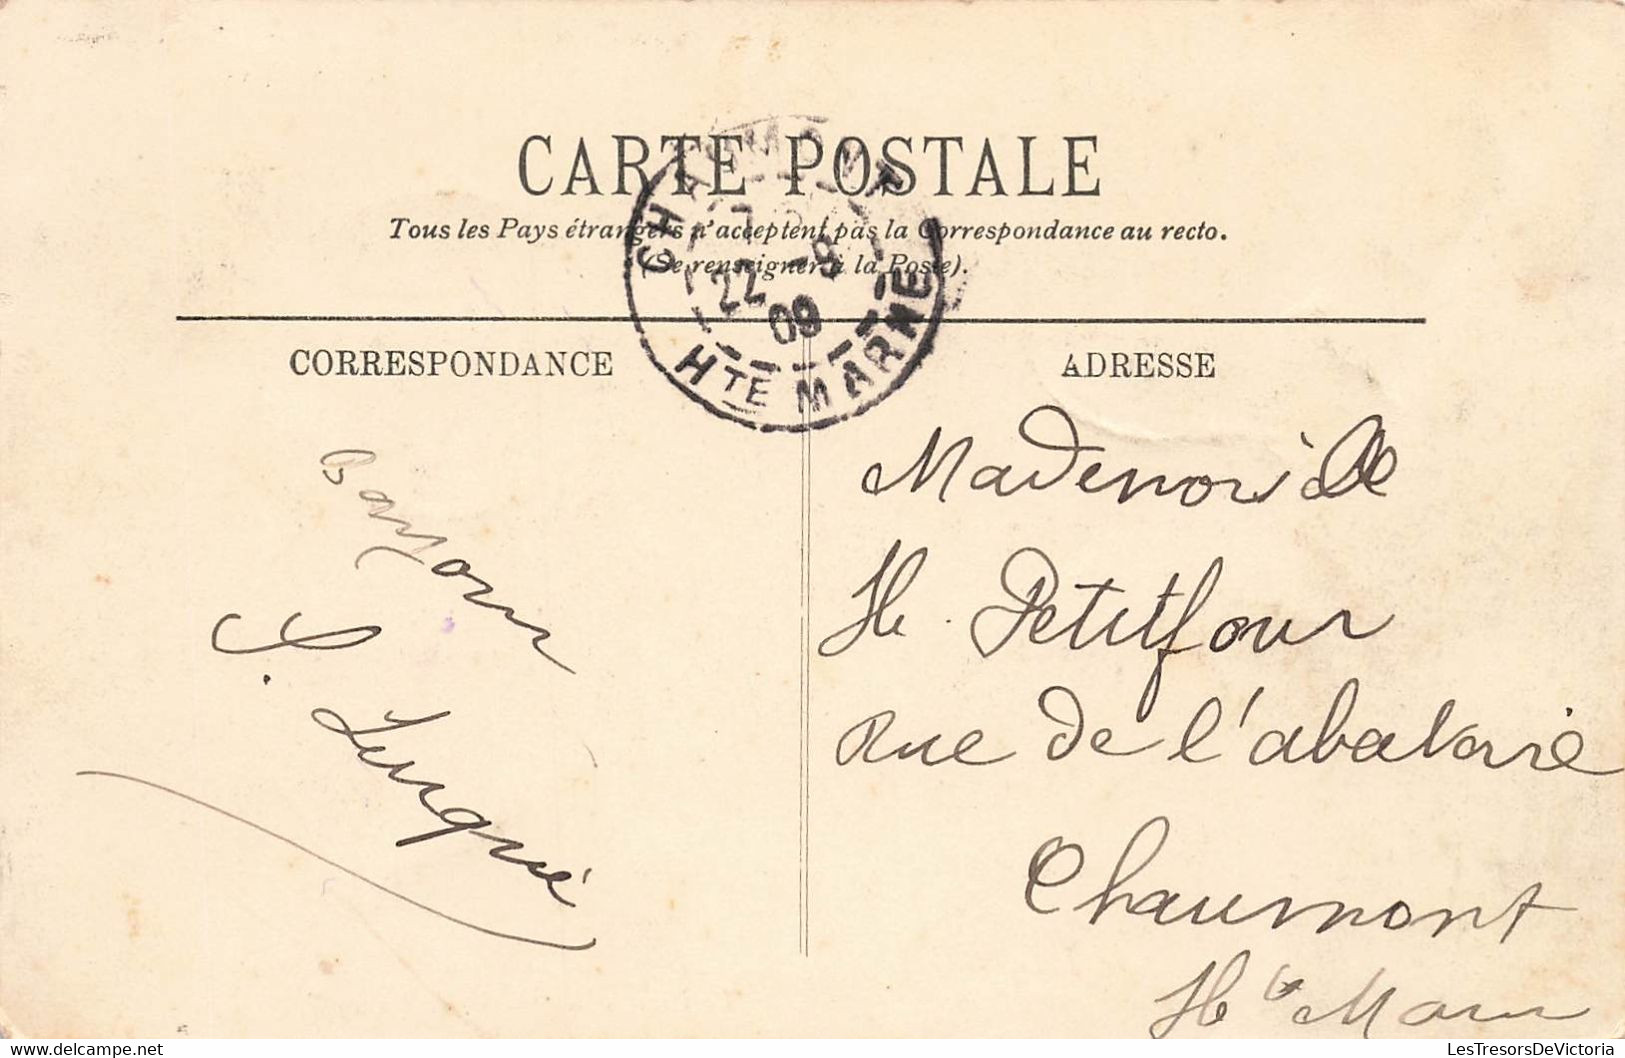 CARTE POSTALE
Tous les Pays étrangers n'acceptent pas la Correspondance au recto.
(Se renseigner à la Poste).
CHAUMONT
22 -9
09
HTE MARNE
CORRESPONDANCE
ADRESSE
Bonjour
S.
Mademoiselle
H. Petitfour
Rue de l'abatoire
Chaumont
Hte Marne
LesTresorsDeVictoria